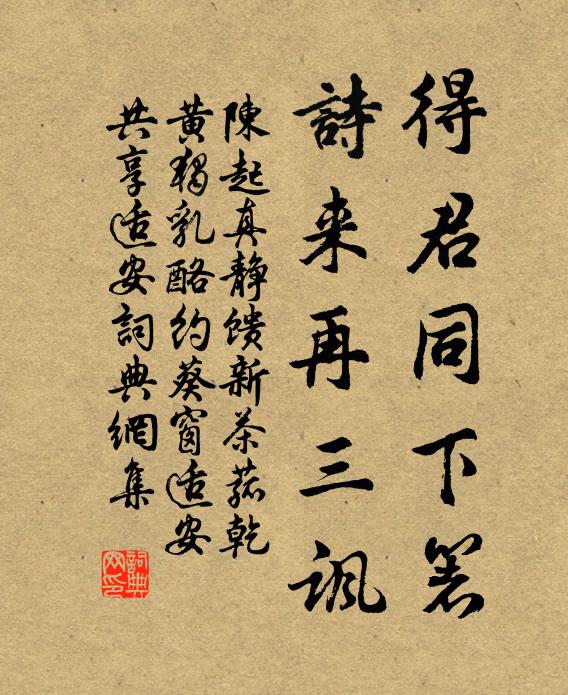 得君同下箸
詩来再三諷
陳起真靜饋新茶菰乾
黃獨乳酪約葵窗适安
共享适安詞典網集
詞典網印